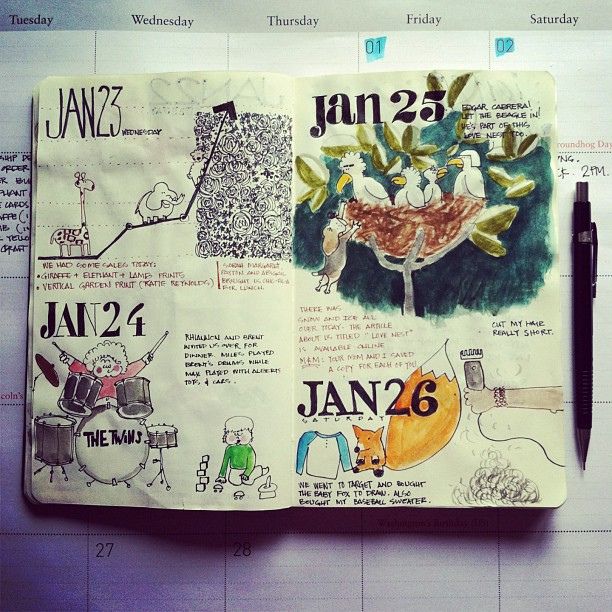 Tuesday
Wednesday
Thursday
Friday
Saturday
01
02
JAN 23
WEDNESDAY
WE HAD SOME SALES TODAY:
• GIRAFFE + ELEPHANT + LAMB PRINTS
• VERTICAL GARDEN PRINT (KATIE REYNOLDS)
SARAH MARGARET,
AND ABIGAIL
BROUGHT US CHIC-FIL-A
FOR LUNCH.
JAN 24
RHIANNON AND BRENT
INVITED US OVER FOR
DINNER. MILES PLAYED
BRENT'S DRUMS WHILE
MAX PLAYED WITH ALBERT'S
TOYS & CARS.
THE TWINS
Jan 25
EDGAR CABRERA!
LET THE BEAGLE IN!
HE'S PART OF THIS
LOVE NEST TOO.
THERE WAS
SNOW AND ICE ALL
OVER TODAY. THE ARTICLE
ABOUT US TITLED "LOVE NEST"
IS AVAILABLE ONLINE
M&M: YOUR MOM AND I SAVED
A COPY FOR EACH OF YOU.
CUT MY HAIR
REALLY SHORT.
JAN 26
SATURDAY
WE WENT TO TARGET AND BOUGHT
THE BABY FOX TO DRAW. ALSO
BOUGHT MY BASEBALL SWEATER.
roundhog Day
ING.
2PM.
SHIP
ORDER
CARDS
YELLO
CRAFT
coln's
Washington's Birthday (US)
27
28